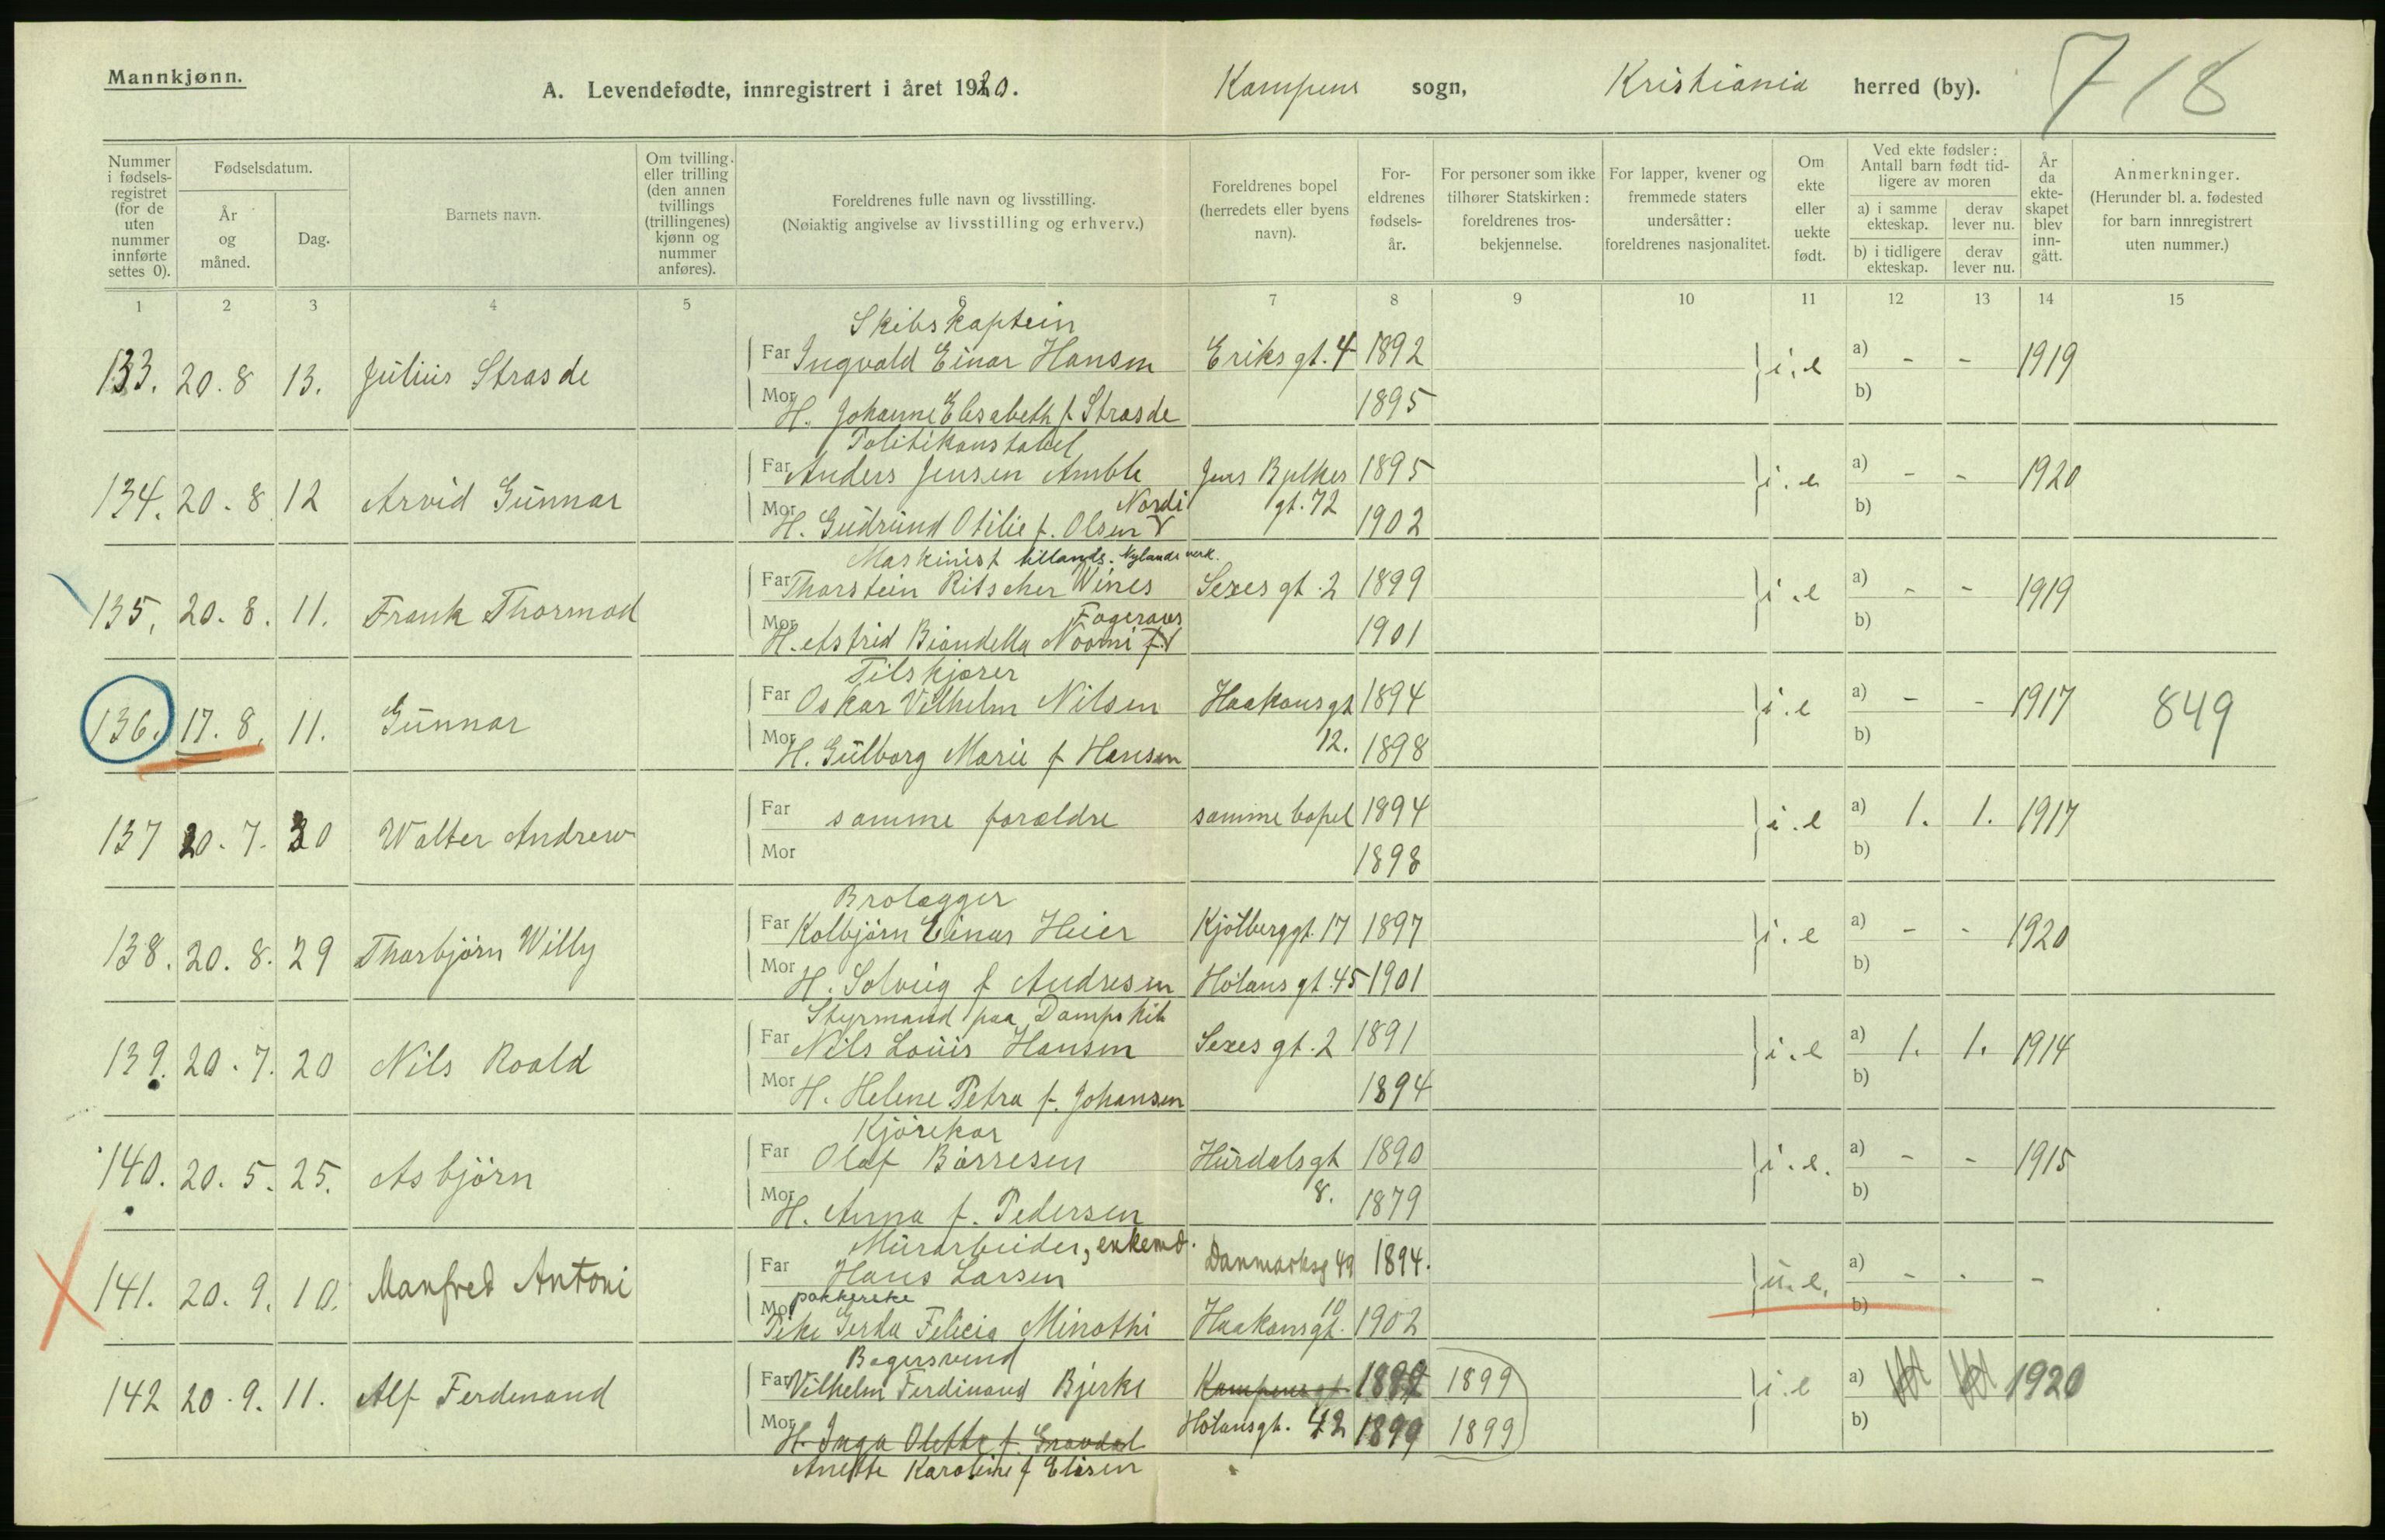 Mannkjønn.
A. Levendefødte, innregistrert i året 1920. Kampens sogn, Kristiania herred (by). 718
Nummer i fødsels-registret (for de uten nummer innførte settes 0).
Fødselsdatum.
År og måned.
Dag.
Barnets navn.
Om tvilling eller trilling (den annen tvillings (trillingenes) kjønn og nummer anføres).
Foreldrenes fulle navn og livsstilling.
(Nøiaktig angivelse av livsstilling og erhverv.)
Foreldrenes bopel (herredets eller byens navn).
For-eldrenes fødsels-år.
For personer som ikke tilhører Statskirken: foreldrenes tros-bekjennelse.
For lapper, kvener og fremmede staters undersåtter: foreldrenes nasjonalitet.
Om ekte eller uekte født.
Ved ekte fødsler: Antall barn født tid-ligere av moren
a) i samme ekteskap. derav lever nu.
b) i tidligere ekteskap. derav lever nu.
År da ekte-skapet blev inn-gått.
Anmerkninger.
(Herunder bl. a. fødested for barn innregistrert uten nummer.)
1 2 3 4 5 6 7 8 9 10 11 12 13 14 15
Skibskaptein
133. 20.8 13. Julius Strasde Far Ingvald Einar Hansen Eriks gt. 4 1892 i.e a) - - 1919
Mor H. Johanne Elisabeth f. Strasde 1895 b)
Politikonstabel
134. 20.8 12 Arvid Gunnar Far Anders Jensen Amble Jens Bjelkes 1895 i.e a) - - 1920
Nordi
Mor H. Gudrund Otilie f. Olsen V gt. 72 1902 b)
Maskinist tillands. Nylands verk.
135. 20.8. 11. Frank Thormod Far Thorstein Ritscher Wines Sexes gt. 2 1899 i.e a) - - 1919
Mor H. Astrid Biondella Noomi f. 1901 b)
Filskjærer
136. 17.8. 11. Gunnar Far Oskar Vilhelm Nilsen Haakons gt 1894 i.e a) - - 1917 849
Mor H. Gulborg Marie f Hansen 12. 1898 b)
137 20.7. 30 Walter Andrew Far samme forældre samme bopel 1894 i.e a) 1. 1. 1917
Mor 1898 b)
Brolægger
138. 20.8. 29 Thorbjørn Willy Far Kolbjørn Einar Heier Kjølberggt. 17 1897 i.e a) - - 1920
Mor H. Solveig f Andresen Hølans gt. 45 1901 b)
Styrmand paa Dampskib
139. 20.7. 20 Nils Roald Far Nils Louis Hansen Sexes gt. 2 1891 i.e a) 1. 1. 1914
Mor H. Helene Petra f. Johansen 1894 b)
Kjørekar
140. 20.5. 25. Asbjörn Far Olaf Børresen Hurdalsgt 1890 i.e. a) - - 1915
Mor H. Anna f. Pedersen 8. 1879 b)
Murarbeider, enkemd.
141. 20.9. 10. Manfred Antoni Far Hans Larsen Danmarksg 49 1894. u.e. a) - - -
pakkerske
Mor Pike Gerda Felicia Minothi Haakonsgt. 10 1902 b)
Bagersvend
142 20.9. 11. Alf Ferdinand Far Vilhelm Ferdinand Bjerke Kampensgt 1899 1899 i.e a) 1920
Mor H. Inga Olette f. Gravdal Hølansgt. 42 1899 1899 b)
Anette Karoline f Elisen